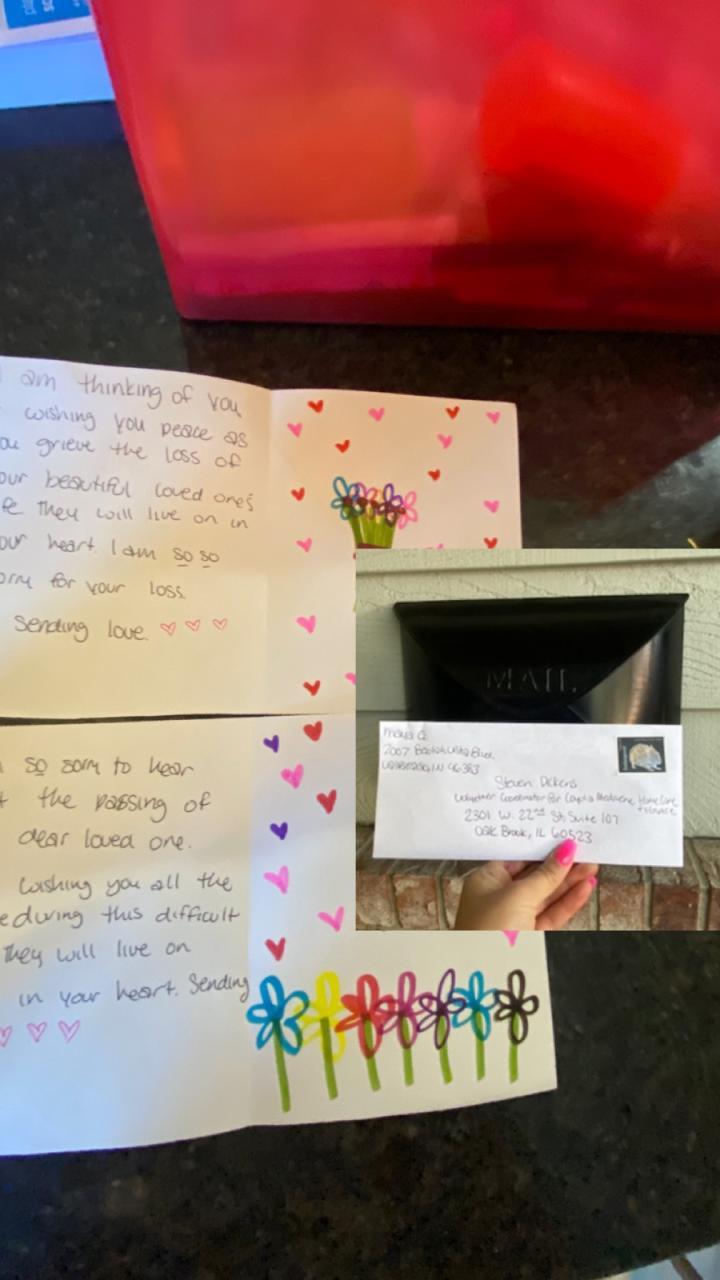 am thinking of you
wishing you peace as
ou grieve the loss of
our beautiful loved one's
fe they will live on in
our heart. I am so so
orry for your loss.
Sending love.
so sorry to hear
the passing of
dear loved one.
wishing you all the
e during this difficult
They will live on
in your heart. Sending
MAIL
Maya G.
2007
IN 46383
Steven Dickens
Volunteer Coordinator for Home Care
+ Hospice
2301 W. 22nd St. Suite 107
Oak Brook, IL 60523